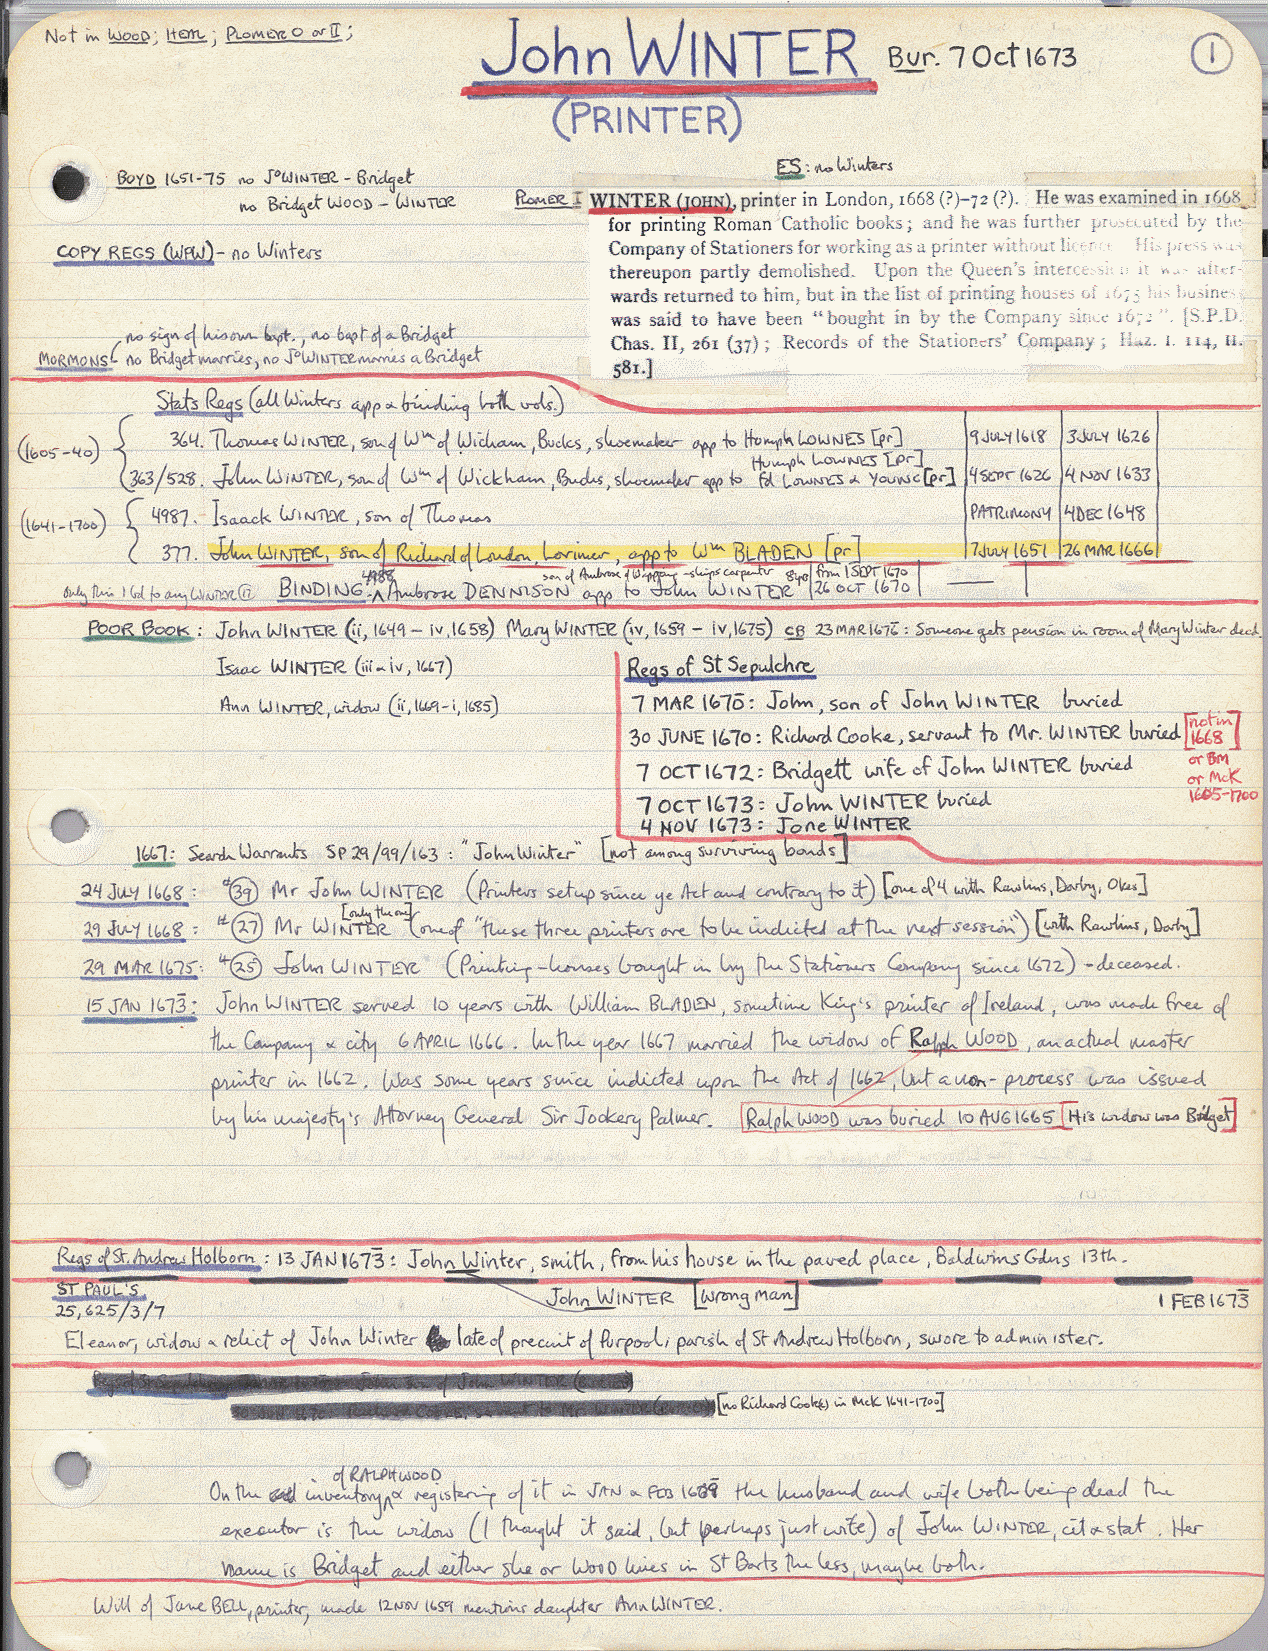 Not in WOOD; HEAL; PLOMER O or II;
John WINTER Bur. 7 Oct 1673
1
(PRINTER)
BOYD 1651-75 no Jo WINTER - Bridget
no Bridget WOOD - WINTER
ES: no Winters
PLOMER I
WINTER (JOHN), printer in London, 1668 (?)–72 (?). He was examined in 1668
for printing Roman Catholic books; and he was further prosecuted by the
Company of Stationers for working as a printer without licence. His press was
thereupon partly demolished. Upon the Queen's intercession it was after-
wards returned to him, but in the list of printing houses of 1675 his business
was said to have been "bought in by the Company since 1672". [S.P.D.
Chas. II, 261 (37); Records of the Stationers' Company; Haz. I. 114, II.
581.]
COPY REGS (WPW) - no Winters
MORMONS
no sign of his own bapt., no bapt of a Bridget
no Bridget marries, no Jo WINTER marries a Bridget
Stats Regs (all Winters app & binding both vols.)
(1605-40)
364. Thomas WINTER, son of Wm of Wicham, Bucks, shoemaker app to Humph LOWNES [pr] 9 JULY 1618 3 JULY 1626
Humph LOWNES [pr]
363/528. John WINTER, son of Wm of Wickham, Bucks, shoemaker app to Ed LOWNES & YOUNG [pr] 4 SEPT 1626 4 NOV 1633
(1641-1700)
4987. Isaack WINTER, son of Thomas PATRIMONY 4 DEC 1648
377. John WINTER, son of Richard of London, Lorimer, app to Wm BLADEN [pr] 7 JULY 1651 26 MAR 1666
son of Ambrose of Wapping - ships carpenter 8 yrs from 1 SEPT 1670
only this 1 bd to any WINTER BINDING: 4988 Ambrose DENNISON app to John WINTER 26 OCT 1670
POOR BOOK: John WINTER (ii, 1649 - iv, 1658) Mary WINTER (iv, 1659 - iv, 1675) CB 23 MAR 1675: Someone gets pension in room of Mary Winter decd.
Isaac WINTER (iii & iv, 1667)
Ann WINTER, widow (ii, 1669 - i, 1685)
Regs of St Sepulchre
7 MAR 1670: John, son of John WINTER buried
30 JUNE 1670: Richard Cooke, servant to Mr. WINTER buried
[not in
1668]
or BM
or McK
1605-1700
7 OCT 1672: Bridgett wife of John WINTER buried
7 OCT 1673: John WINTER buried
4 NOV 1673: Jone WINTER
1667: Search Warrants SP 29/99/163: "John Winter" [not among surviving bonds]
24 JULY 1668: #39 Mr John WINTER (Printers set up since ye Act and contrary to it) [one of 4 with Rawlins, Darby, Okes]
[only the one]
29 JULY 1668: #27 Mr WINTER (one of "these three printers are to be indicted at the next session") [with Rawlins, Darby]
29 MAR 1675: #25 John WINTER (Printing-houses bought in by the Stationers Company since 1672) - deceased.
15 JAN 1673: John WINTER served 10 years with William BLADEN, sometime King's printer of Ireland, was made free of
the Company & city 6 APRIL 1666. In the year 1667 married the widow of Ralph WOOD, an actual master
printer in 1662. Was some years since indicted upon the Act of 1662, but a non-process was issued
by his majesty's Attorney General Sir Jookery Palmer. Ralph WOOD was buried 10 AUG 1665 [His widow was Bridget]
Regs of St. Andrew Holborn: 13 JAN 1673: John Winter, smith, from his house in the paved place, Baldwins Gdns 13th.
ST PAUL'S
25,625/3/7
John WINTER [wrong man] 1 FEB 1673
Eleanor, widow & relict of John Winter late of precinct of Purpool, parish of St Andrew Holborn, swore to administer.
[no Richard Cook(e) in McK 1641-1700]
of RALPH WOOD
On the inventory & registering of it in JAN & FEB 1669 the husband and wife both being dead the
executor is the widow (I thought it said, but perhaps just wife) of John WINTER, cit & stat. Her
name is Bridget and either she or WOOD lives in St Barts the less, maybe both.
Will of Jane BELL, printer, made 12 NOV 1659 mentions daughter Ann WINTER.